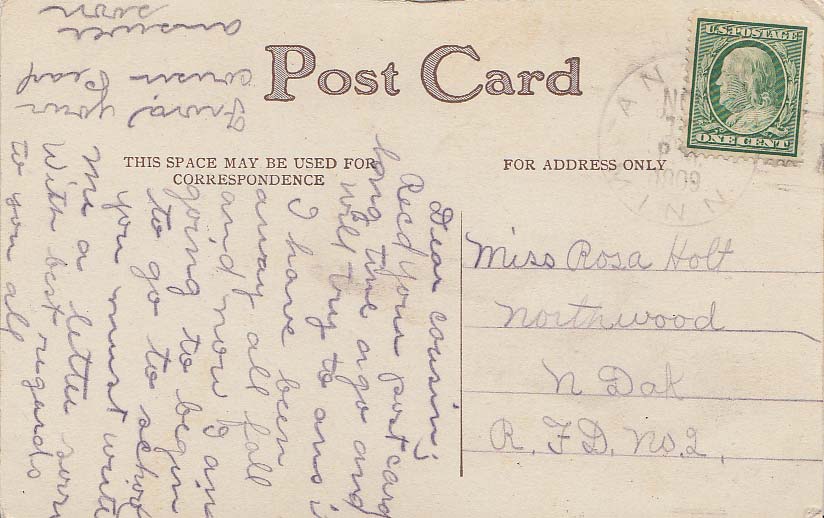 Post Card
THIS SPACE MAY BE USED FOR
CORRESPONDENCE
FOR ADDRESS ONLY
U.S. POSTAGE
ONE CENT
1909
MINN
Miss Rosa Holt
Northwood
N Dak
R. F D. No. 2,
Dear cousin;
Recd your post card
long time ago and
will try to ans
I have been
away all fall
and now I am
going to begin
to go to school
you must write
me a letter soon
With best regards
to you all
From your
cousin Pearl
answer
soon